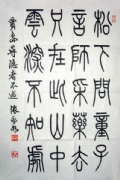 松下問童子
言師採藥去
只在此山中
雲深不知處
賈島尋隱者不遇